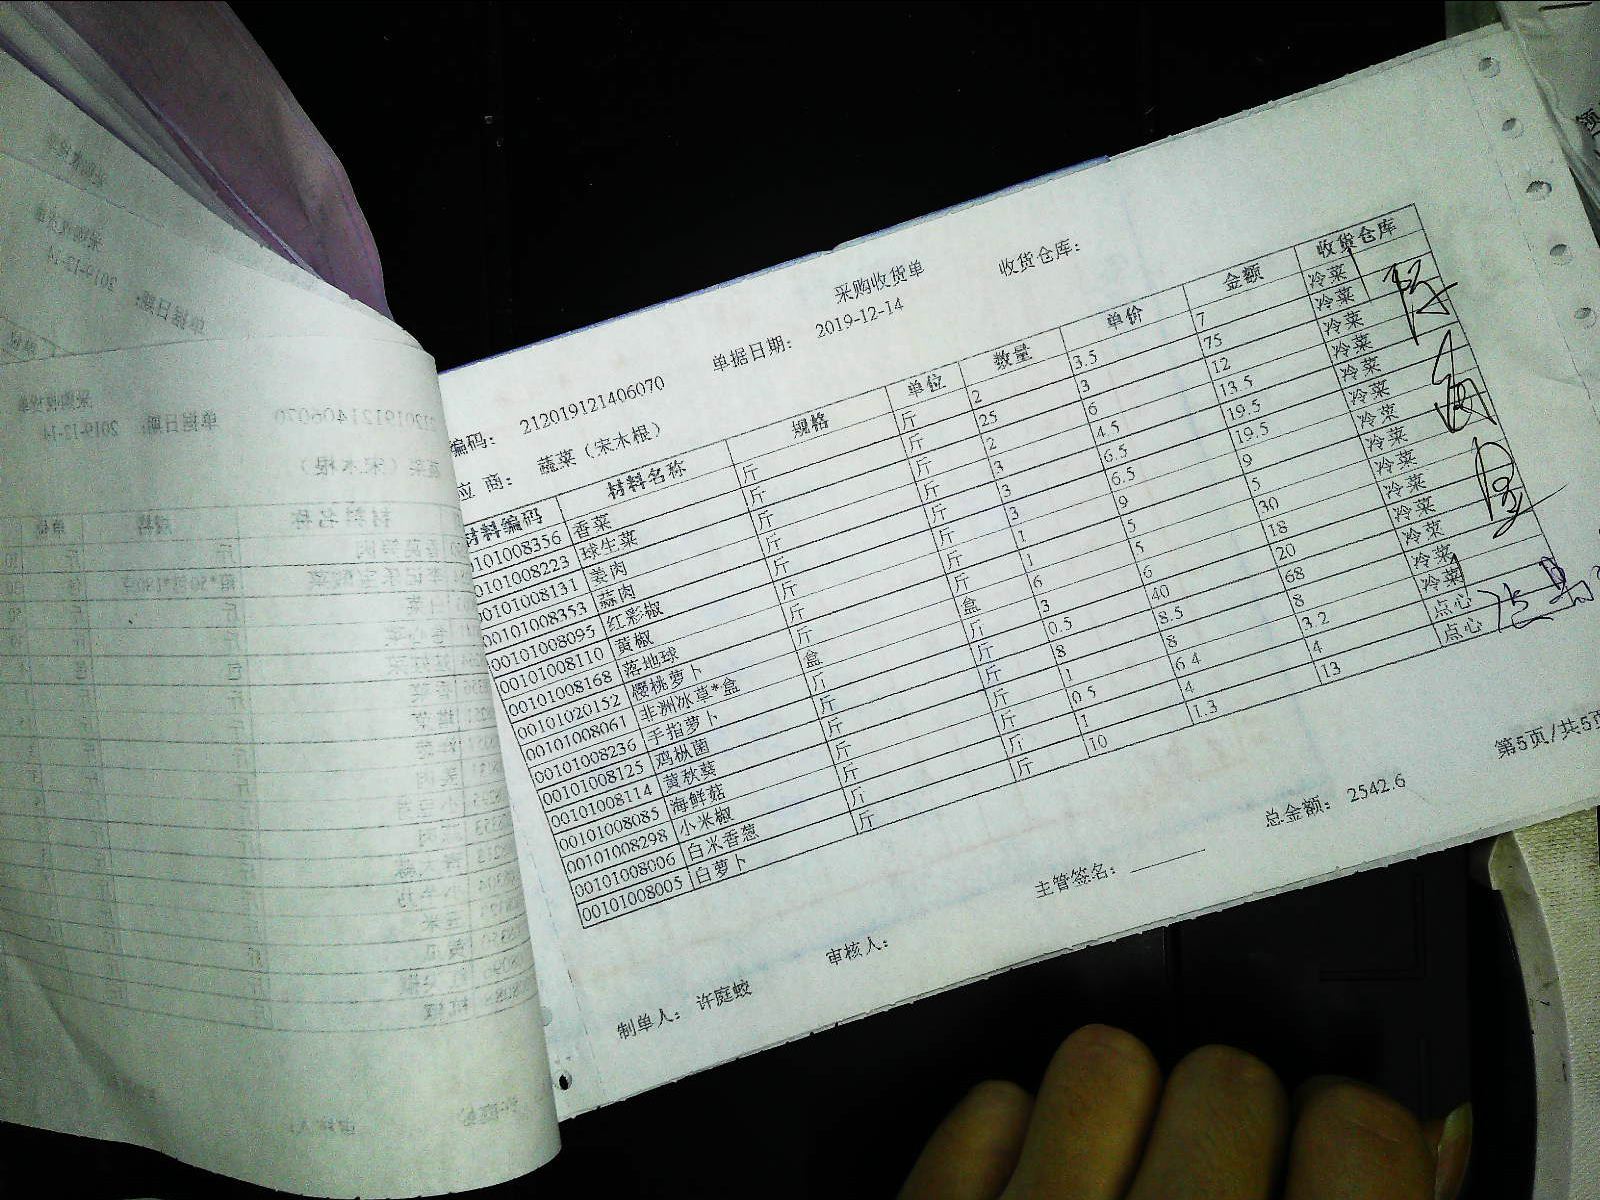 采购收货单
编码： 212019121406070 单据日期： 2019-12-14 收货仓库：
应 商： 蔬菜（宋木根）
材料编码 材料名称 规格 单位 数量 单价 金额 收货仓库
101008356 香菜 斤 斤 2 3.5 7 冷菜
0101008223 球生菜 斤 斤 25 3 75 冷菜
0101008131 姜肉 斤 斤 2 6 12 冷菜
00101008353 蒜肉 斤 斤 3 4.5 13.5 冷菜
00101008095 红彩椒 斤 斤 3 6.5 19.5 冷菜
00101008110 黄椒 斤 斤 3 6.5 19.5 冷菜
00101008168 落地球 斤 斤 1 9 9 冷菜
00101020152 樱桃萝卜 斤 斤 1 5 5 冷菜
00101008061 非洲冰草*盒 盒 盒 6 5 30 冷菜
00101008236 手指萝卜 斤 斤 3 6 18 冷菜
00101008125 鸡枞菌 斤 斤 0.5 40 20 冷菜
00101008114 黄秋葵 斤 斤 8 8.5 68 冷菜
00101008085 海鲜菇 斤 斤 1 8 8 冷菜
00101008298 小米椒 斤 斤 0.5 6.4 3.2 冷菜
00101008006 白米香葱 斤 斤 1 4 4 点心
00101008005 白萝卜 斤 斤 10 1.3 13 点心
总金额： 2542.6 第5页/共5页
制单人： 许庭蛟 审核人： 主管签名：